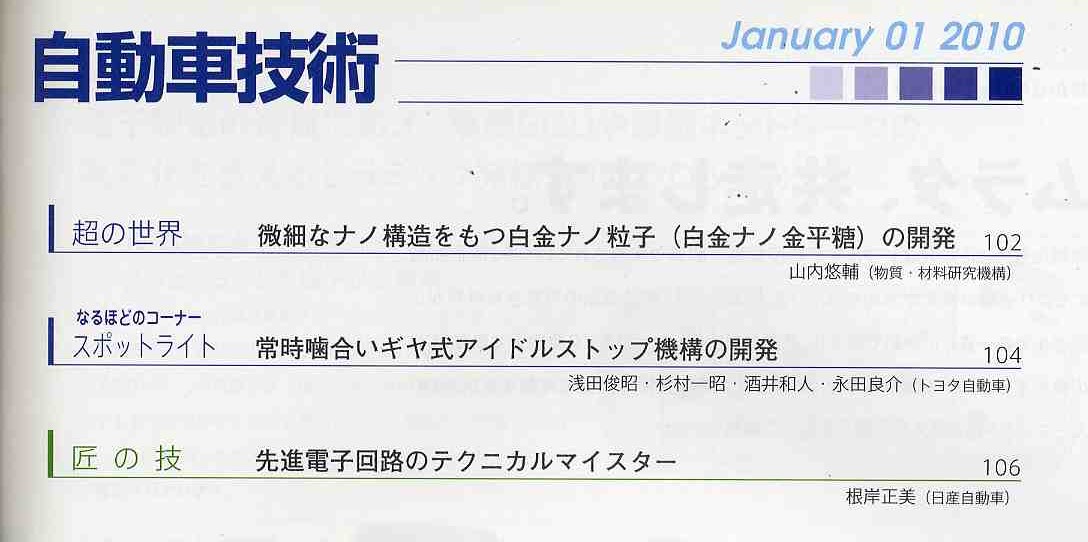 自動車技術
January 01 2010
超の世界 微細なナノ構造をもつ白金ナノ粒子（白金ナノ金平糖）の開発 102
山内悠輔（物質・材料研究機構）
なるほどのコーナー
スポットライト 常時噛合いギヤ式アイドルストップ機構の開発 104
浅田俊昭・杉村一昭・酒井和人・永田良介（トヨタ自動車）
匠の技 先進電子回路のテクニカルマイスター 106
根岸正美（日産自動車）